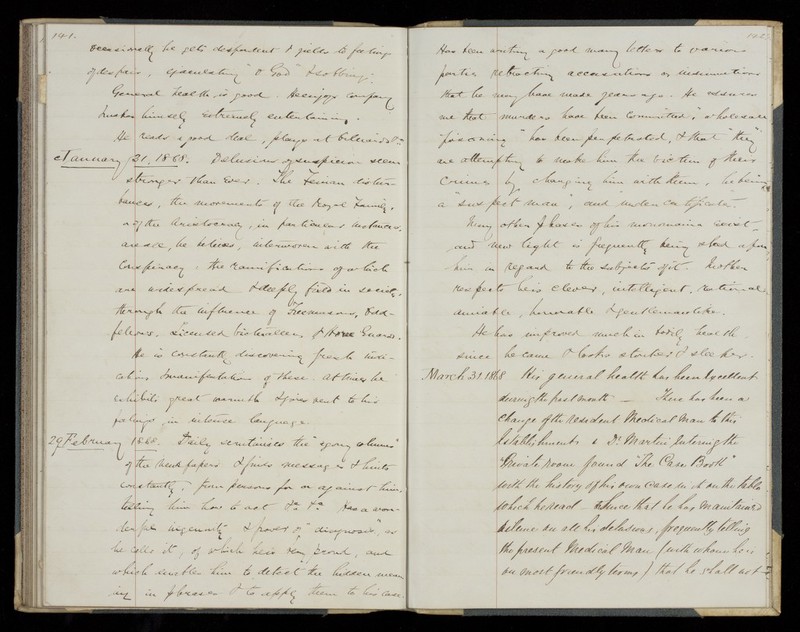 141.
occasionally he gets despondent & yields to feelings
of despair, ejaculating "O God" & sobbing.
General health is good. He enjoys company
& makes himself extremely entertaining.
He reads a good deal, plays at billiards &c
January 31, 1868. Delusions of suspicion seem
stronger than ever. The Fenian distur-
bances, the movements of the Royal Family,
& of the Aristocracy, in particular instances,
are all, he believes, interwoven with the
Conspiracy, the ramifications of which
are widespread & deeply fixed in society,
through the influence of Freemasons, Odd-
fellows, Licensed Victuallers, & Horse Guards.
He is constantly discovering fresh indi-
cations & manifestations of these. At times he
exhibits great warmth & gives vent to his
feelings in intense language.
29 February 1868. Daily scrutinises the "agony column"
of the newspapers & finds messages & hints
constantly, from persons for or against him,
telling him how to act &c &c. Has a won-
derful ingenuity & power of "diagnosis", as
he calls it, of which he is very proud, and
which enables him to detect the hidden mean-
ing in phrases & to apply them to his case.
142.
Has been writing a good many letters to various
parties retracting accusations or insinuations
that he may have made years ago. He assures
me that murders have been committed, "wholesale
poisoning" has been perpetrated, & that "they"
are attempting to make him the victim of their
crimes by charging him with them, he being
a "suspect man", and under certificates.
Many other phases of his monomania exist
and new light is frequently being shed upon
him in regard to the subjects of it. In other
respects he is clever, intelligent, rational,
amiable, honorable & gentlemanlike.
He has improved much in bodily health
since he came & looks stouter & sleeker.
March 31. 1868 His general health has been excellent
during the past month — There has been a
change of the resident Medical Man to this
Establishment & Dr. Martin entering the
Private room found "The Case Book"
with the history of his own case in it on the table
which he read — since that he has maintained
silence on all his delusions, frequently telling
the present Medical Man (with whom he is
on most friendly terms) that he shall not